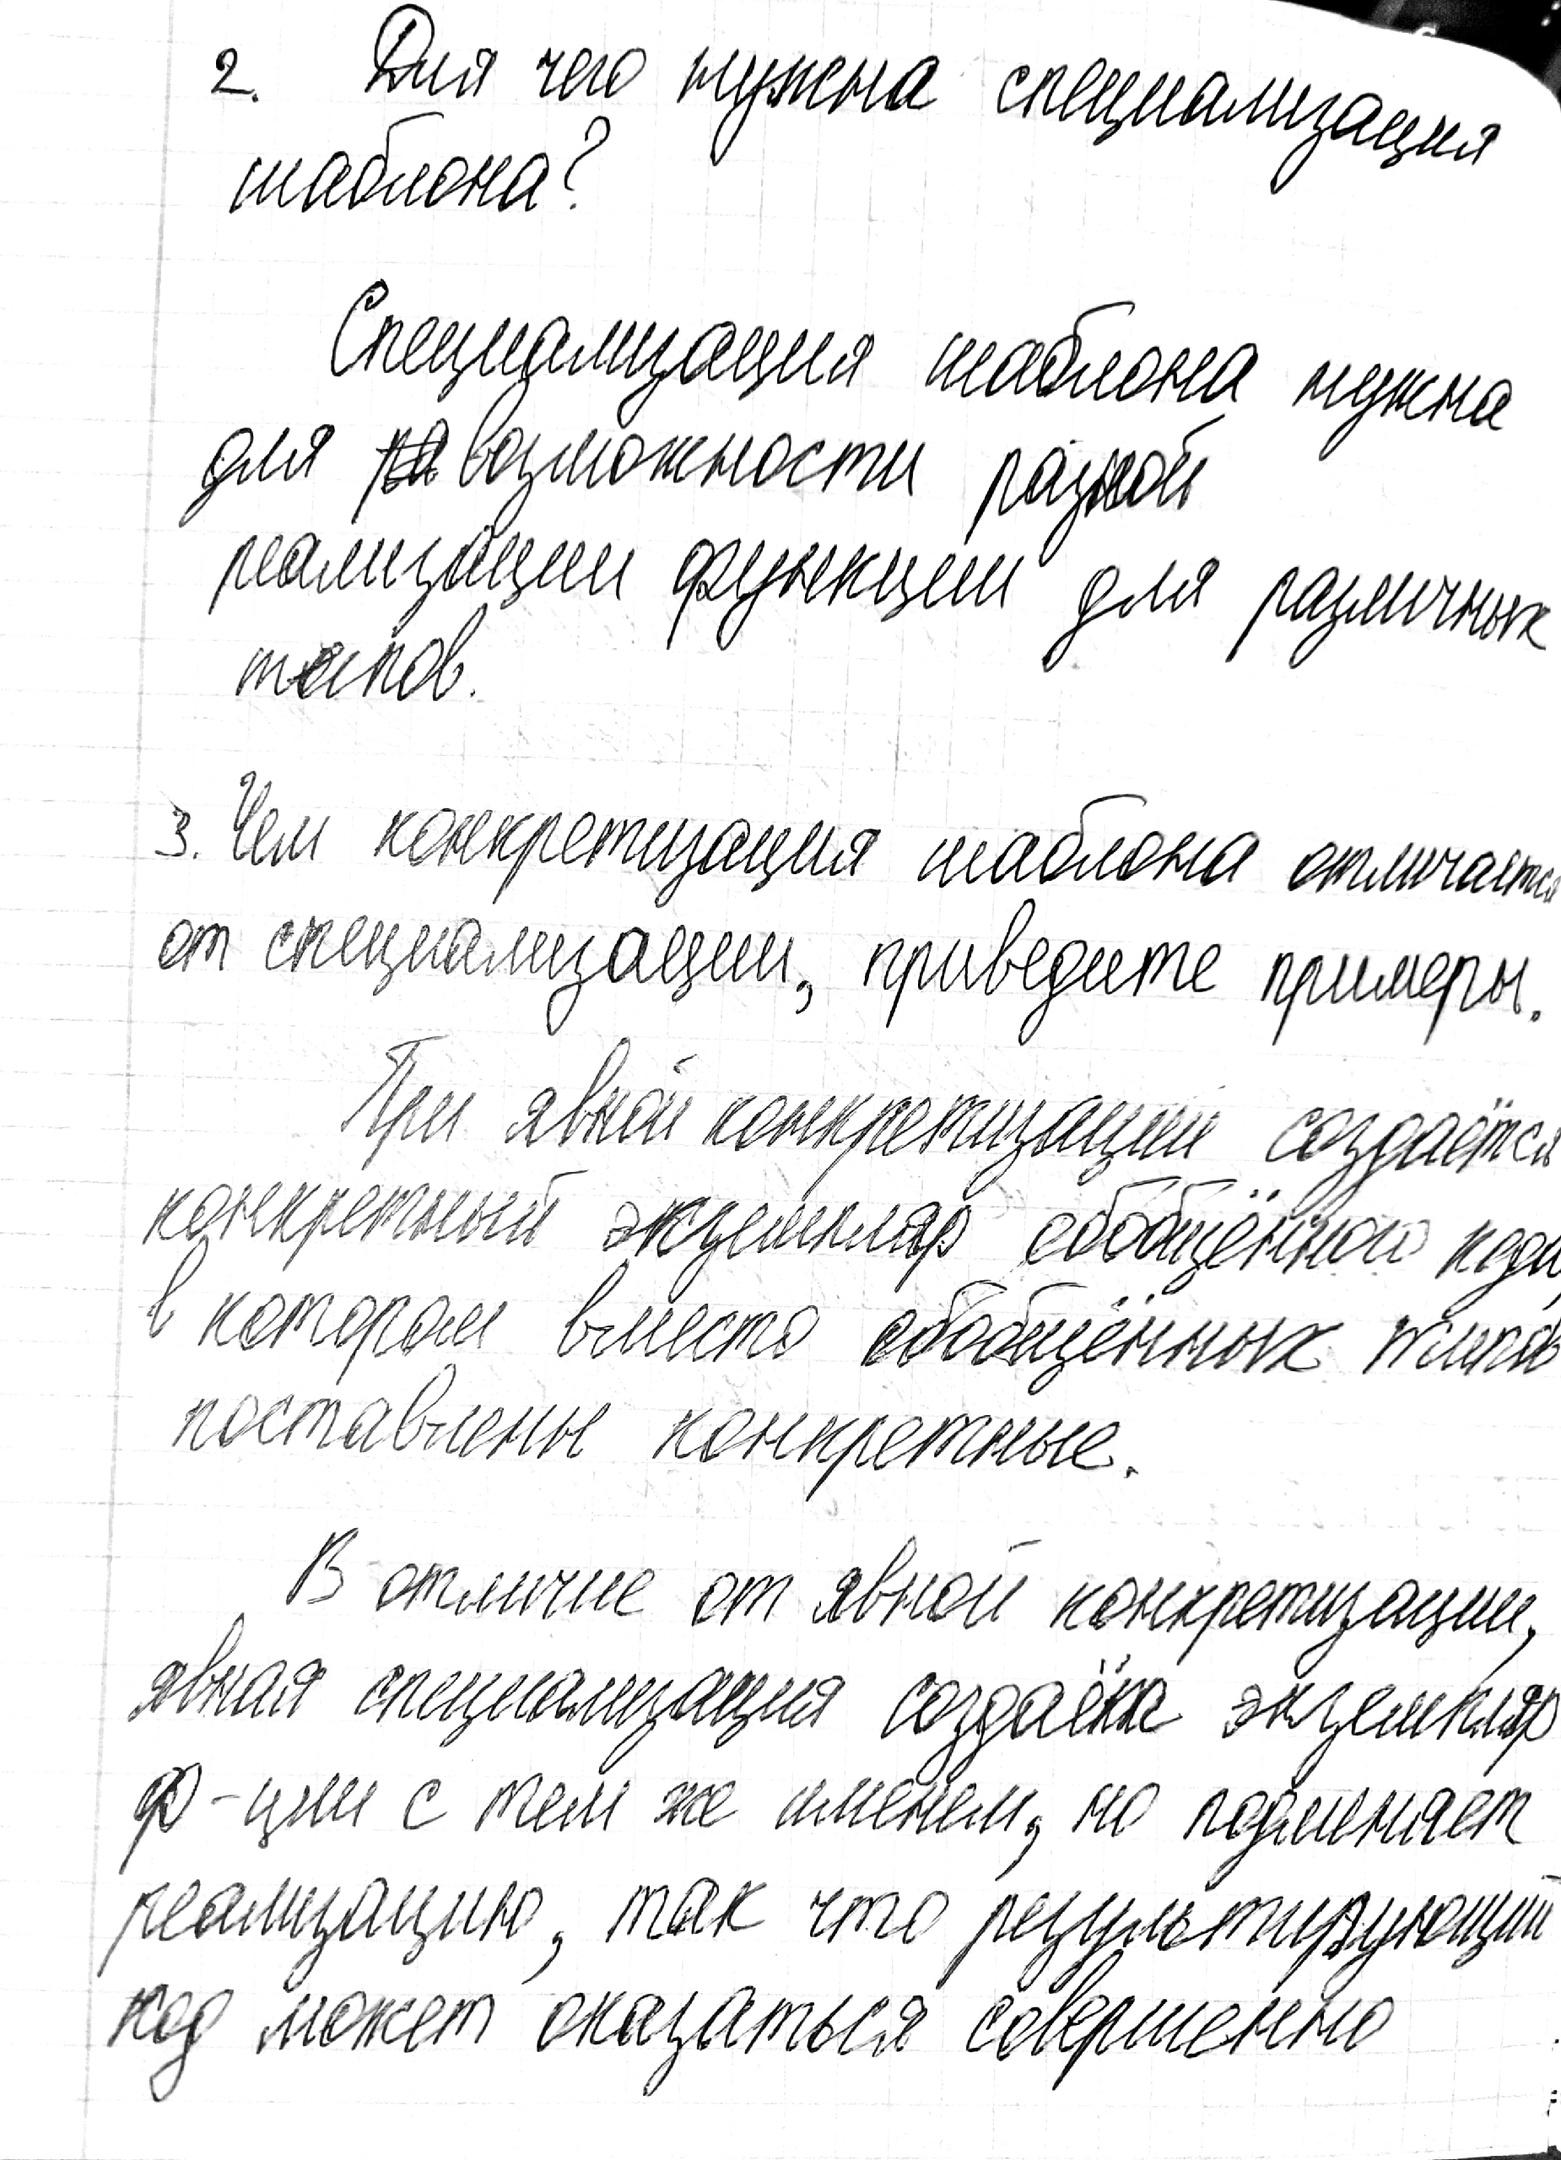 2. Для чего нужна специализация
шаблона?
Специализация шаблона нужна
для возможности разной
реализации функции для различных
типов.
3. Чем конкретизация шаблона отличается
от специализации, приведите примеры.
При явной конкретизации создаётся
конкретный экземпляр обобщённого кода,
в котором вместо обобщённых типов
поставлены конкретные.
В отличие от явной конкретизации,
явная специализация создаёт экземпляр
ф-ции с тем же именем, но подменяет
реализацию, так что результирующий
код может оказаться совершенно